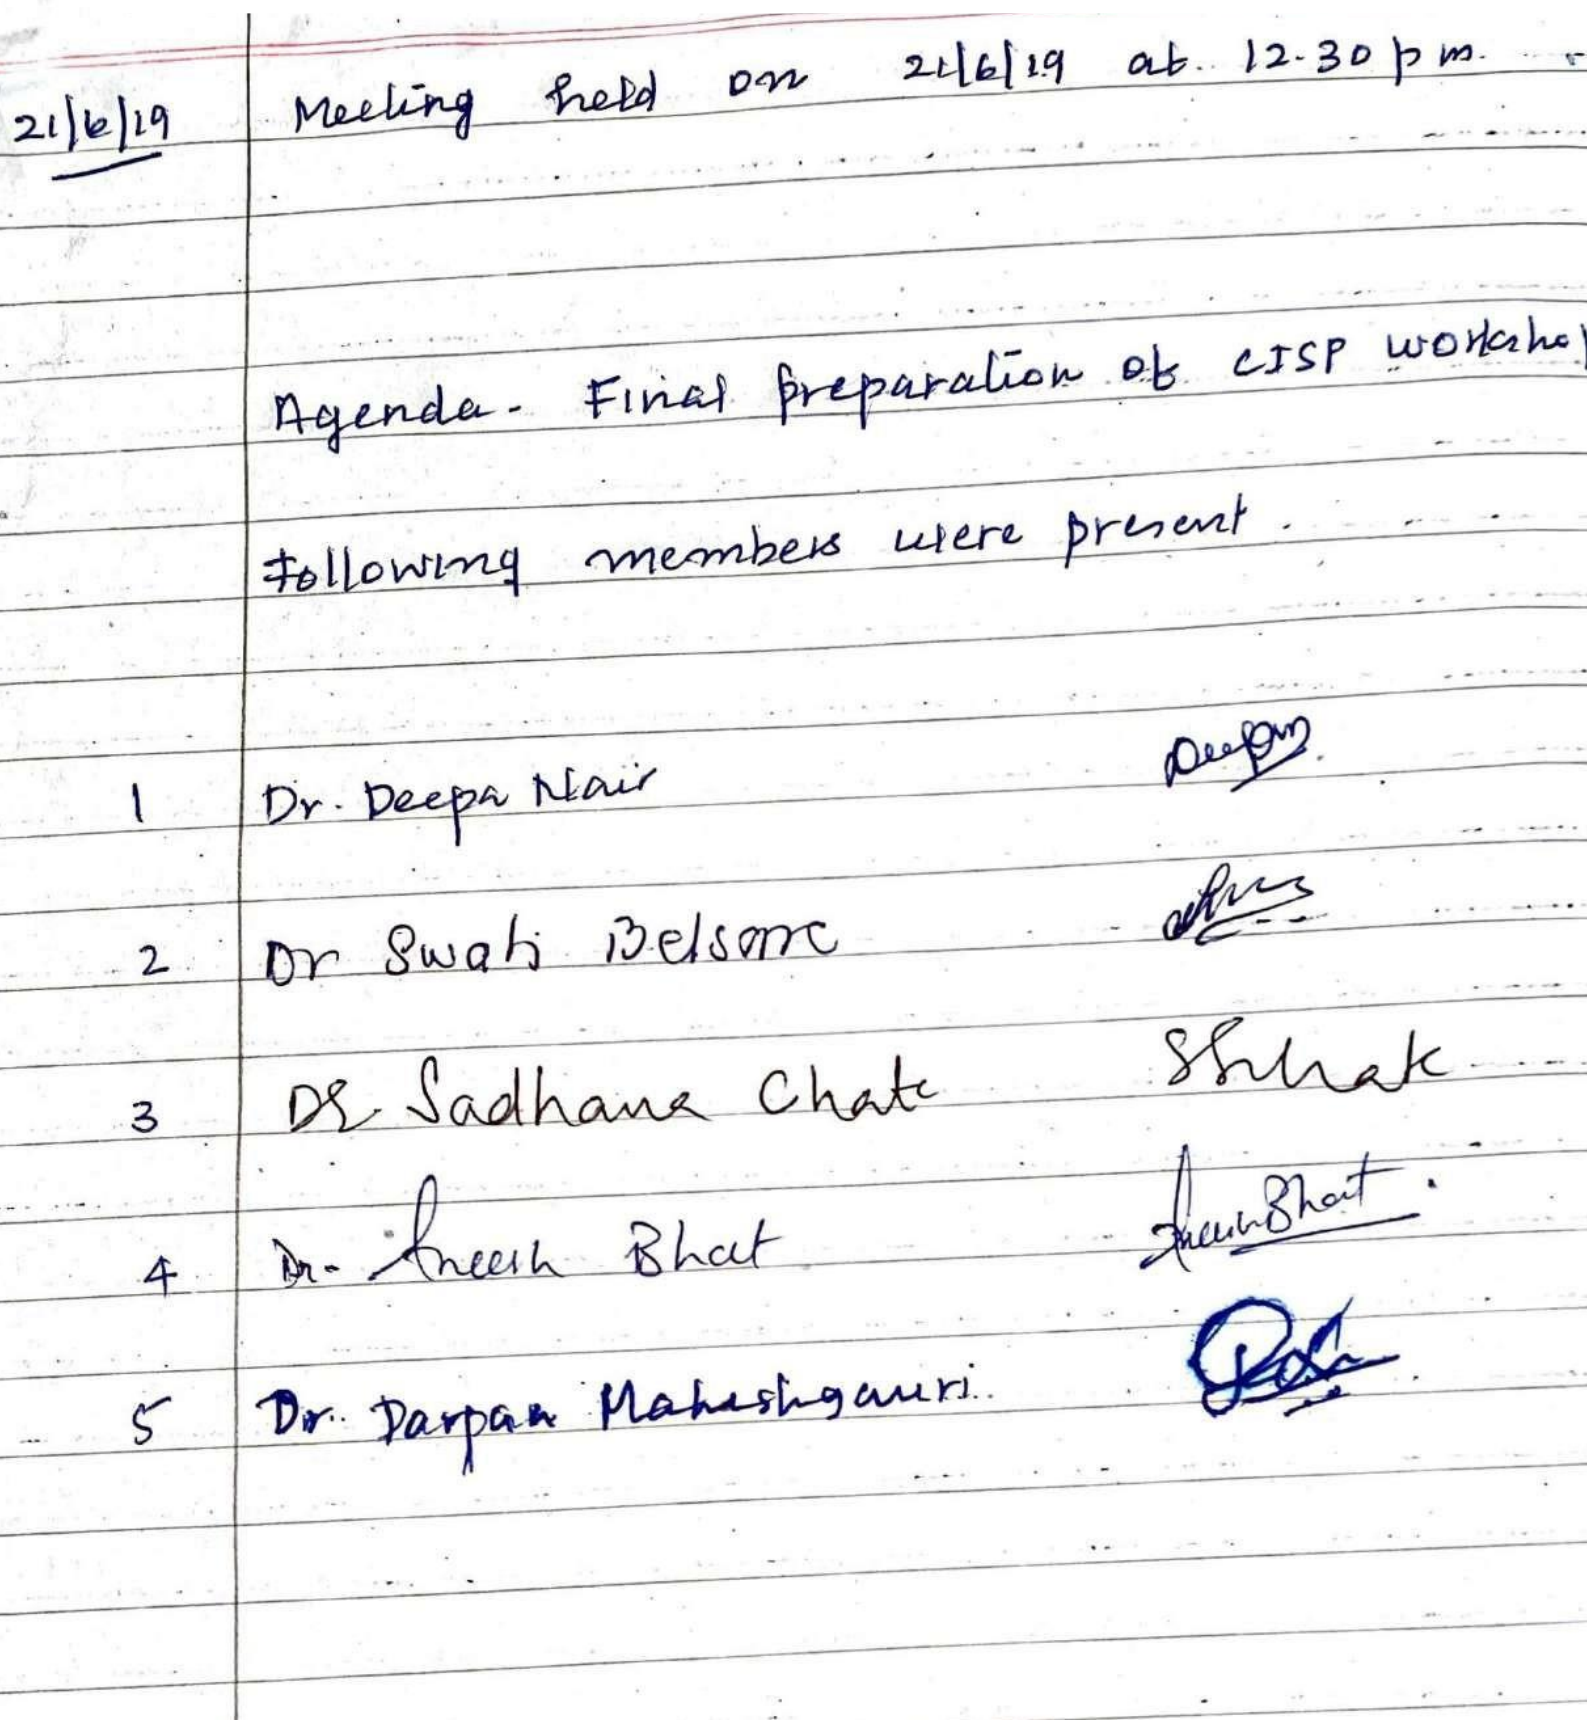 21/6/19 Meeting held on 21/6/19 at. 12.30 pm.
Agenda - Final preparation of CISP workshop
Following members were present.
1 Dr. Deepa Nair Deepa
2 Dr Swati Belsare
3 Dr Sadhana Chate
4 Dr. Aneesh Bhat Aneesh Bhat.
5 Dr. Darpan Maheshgauri.